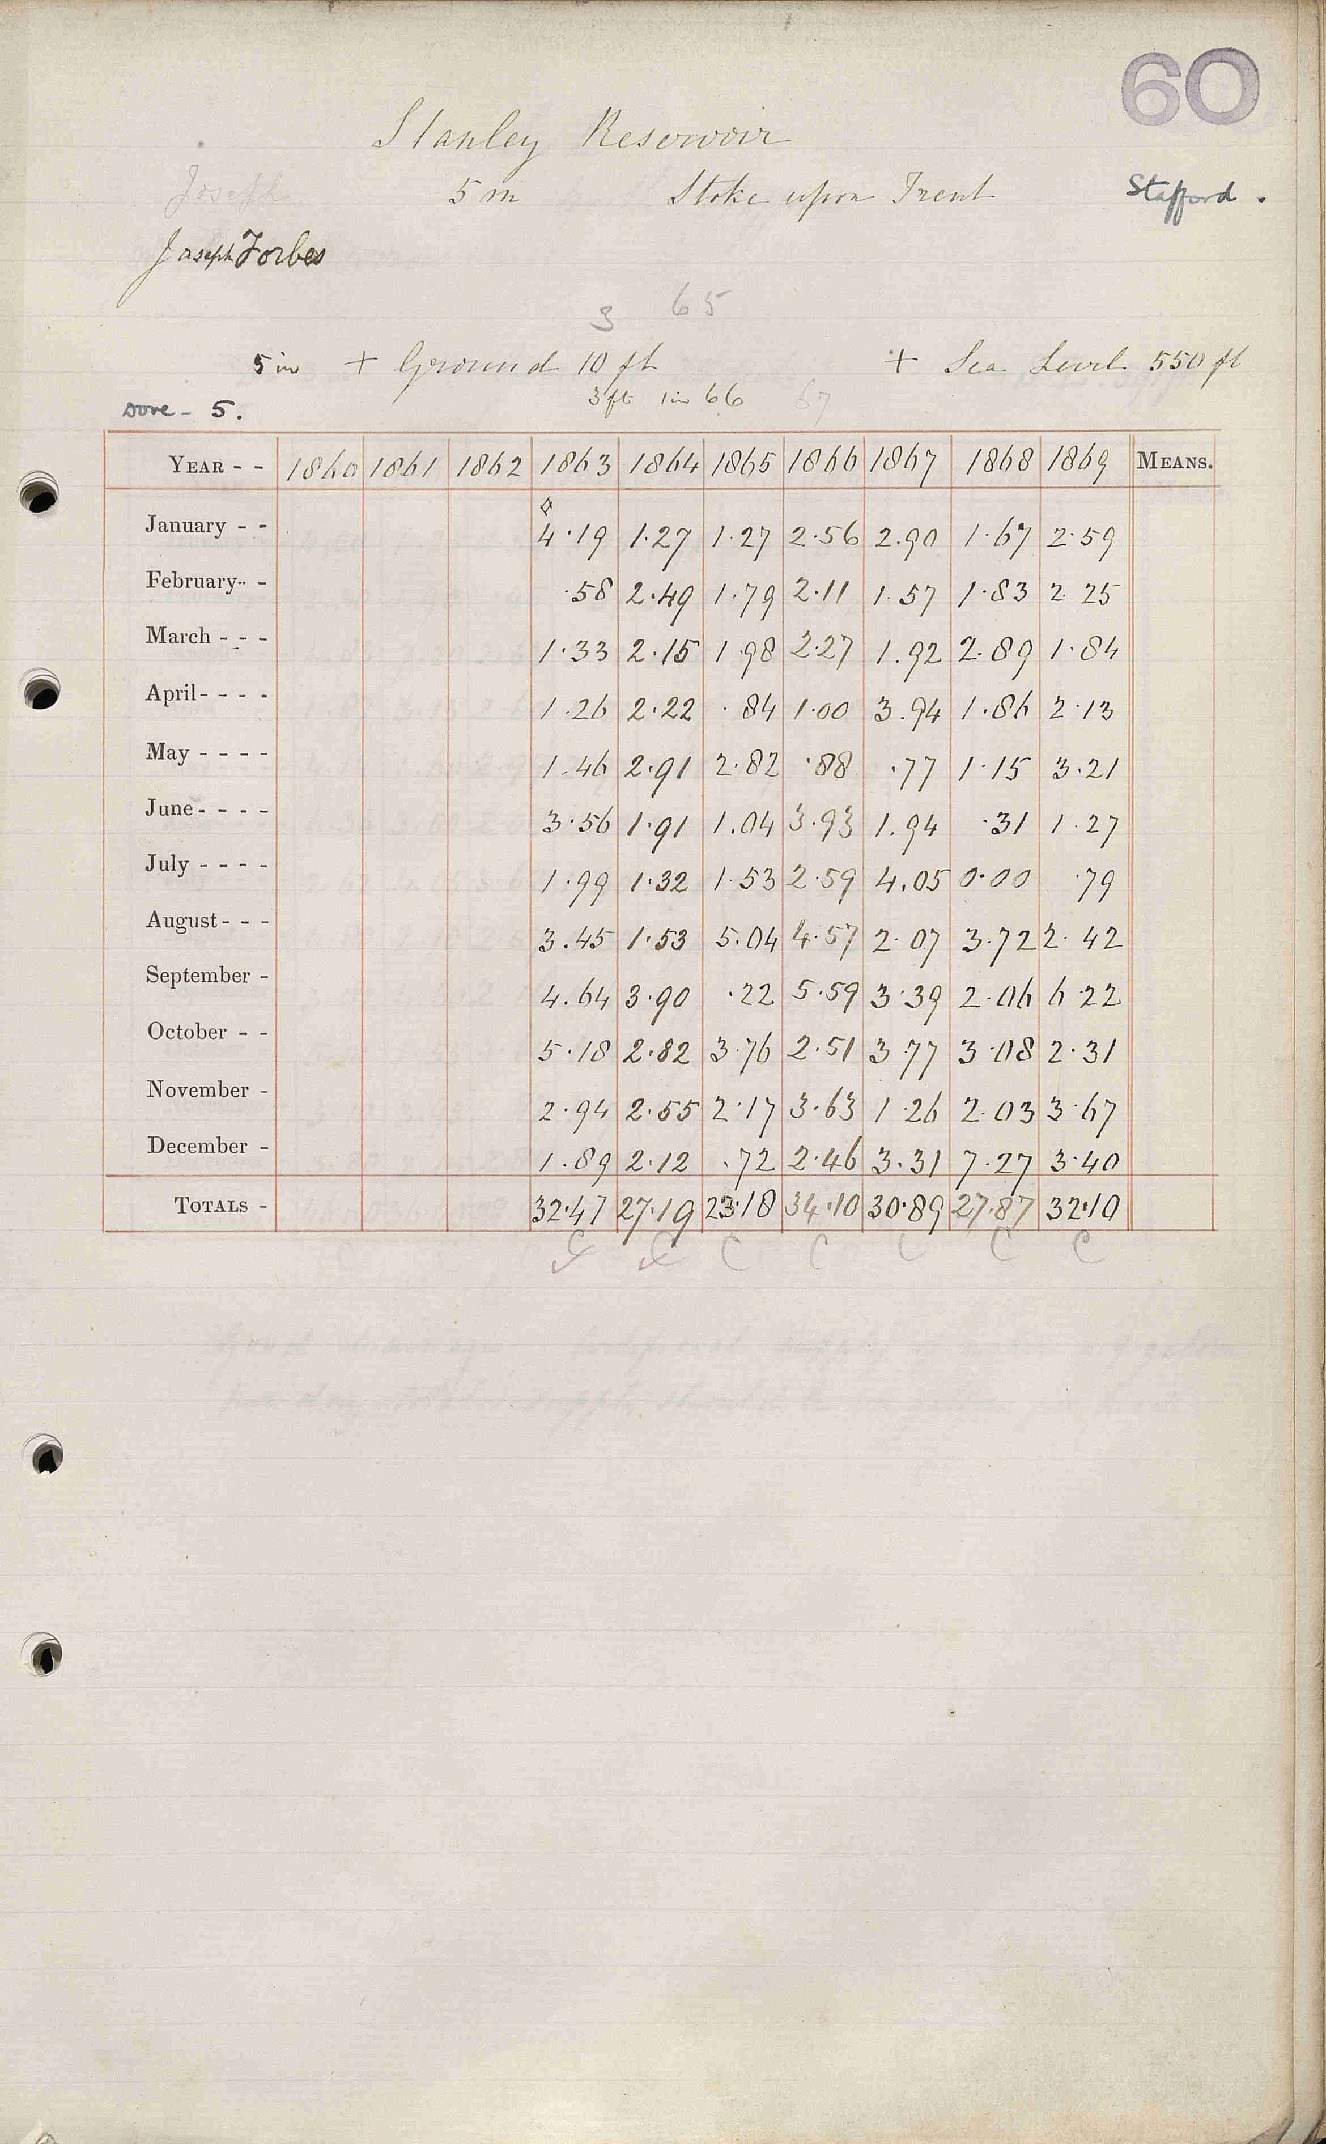 60
Stanley Reservoir
Joseph 5 m Stoke upon Trent Stafford.
Joseph Forbes
3 65
5 in + Ground 10 ft + Sea Level 550 ft
Dove - 5. 3 ft 1 in 66 67
YEAR - - 1860 1861 1862 1863 1864 1865 1866 1867 1868 1869 MEANS.
January - - 4.19 1.27 1.27 2.56 2.90 1.67 2.59
February - - .58 2.49 1.79 2.11 1.57 1.83 2 25
March - - - 1.33 2.15 1 98 2.27 1.92 2.89 1.84
April - - - - 1.26 2.22 .84 1.00 3.94 1.86 2.13
May - - - - 1.46 2.91 2.82 .88 .77 1.15 3.21
June - - - - 3.56 1.91 1.04 3.93 1.94 .31 1.27
July - - - - 1.99 1.32 1.53 2.59 4.05 0.00 .79
August - - - 3.45 1.53 5.04 4.57 2.07 3.72 2.42
September - 4.64 3.90 .22 5.59 3.39 2.06 6.22
October - - 5.18 2.82 3.76 2.51 3.77 3.08 2.31
November - 2.94 2.55 2.17 3.63 1.26 2.03 3.67
December - 1.89 2.12 .72 2.46 3.31 7.27 3.40
TOTALS - 32.47 27.19 23.18 34.10 30.89 27.87 32.10
C C C C C C C